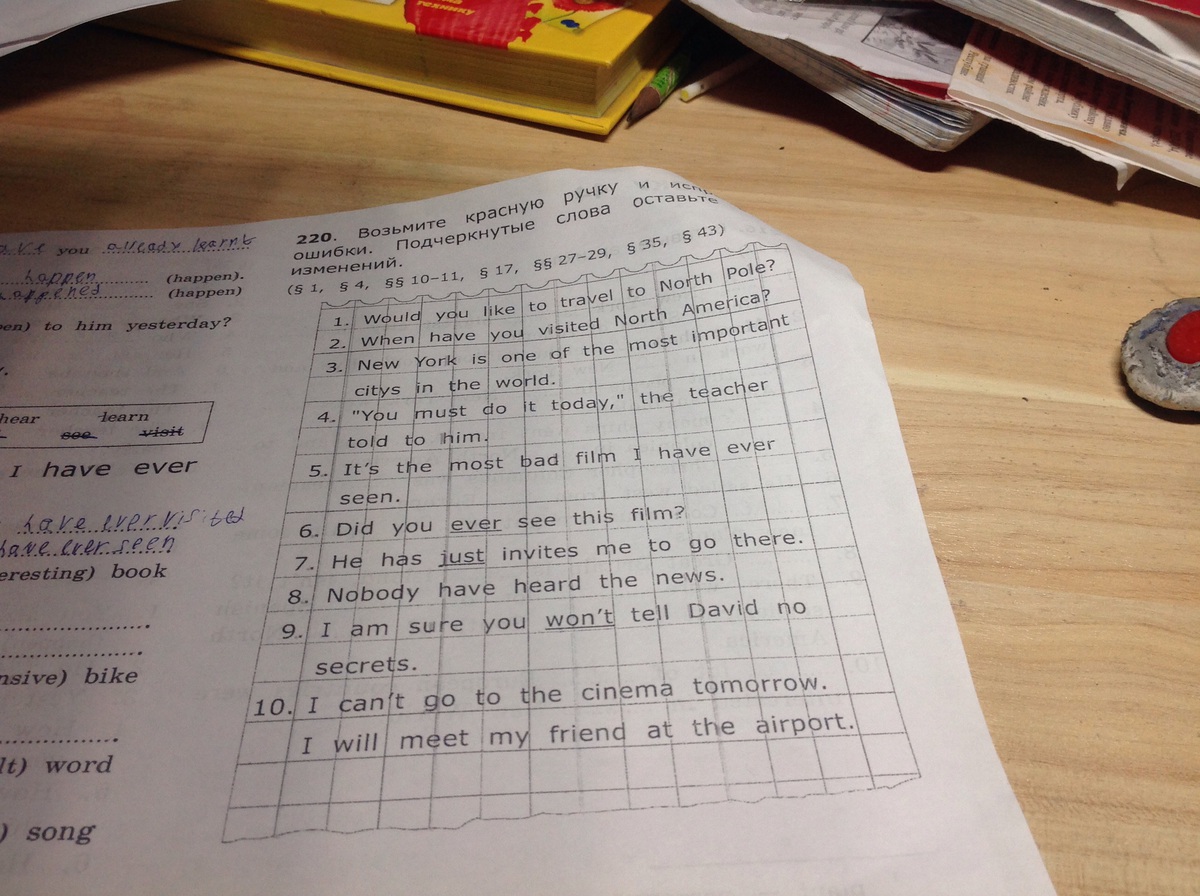 технику
you already learnt
happen (happen).
(happen)
to him yesterday?
hear learn
see visit
I have ever
have ever visited
have ever seen
book
bike
word
song
220. Возьмите красную ручку и
ошибки. Подчеркнутые слова оставьте
изменений.
(§ 1, § 4, §§ 10–11, § 17, §§ 27–29, § 35, § 43)
1. Would you like to travel to North Pole?
2. When have you visited North America?
3. New York is one of the most important
citys in the world.
4. "You must do it today," the teacher
told to him.
5. It's the most bad film I have ever
seen.
6. Did you ever see this film?
7. He has just invites me to go there.
8. Nobody have heard the news.
9. I am sure you won't tell David no
secrets.
10. I can't go to the cinema tomorrow.
I will meet my friend at the airport.